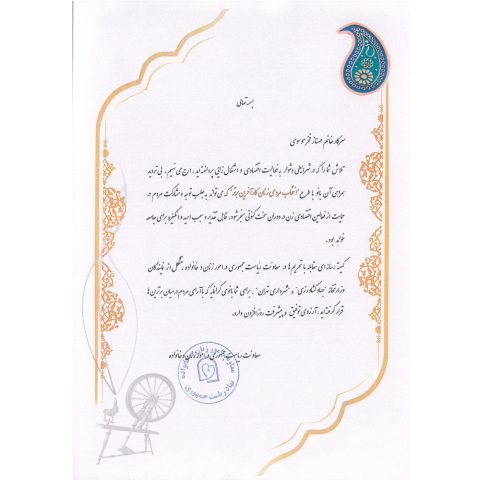 بسمه تعالی
سرکار خانم مهناز فخرموسوی
تلاش شما را که در شرایطی دشوار به فعالیت اقتصادی و اشتغال زایی پرداخته‌اید، ارج می نهیم. بی تردید
همراهی آن بانو با طرح "انتخاب مردمی زنان کارآفرین برتر" که می تواند به جلب توجه و مشارکت مردم در
حمایت از فعالین اقتصادی زن در دوران سخت کنونی منجر شود، قابل تقدیر و سبب امید و انگیزه برای جامعه
خواهد بود.
کمیته رسانه ای مقابله با تحریم ها در معاونت ریاست جمهوری در امور زنان و خانواده، متشکل از نمایندگان
وزارتخانه "جهاد کشاورزی" و "شهرداری تهران"، برای شما بانوی گرانمایه که با آرای مردم در میان برترین ها
قرار گرفته اید، آرزوی توفیق و پیشرفت روزافزون دارد.
معاونت ریاست جمهوری در امور زنان و خانواده
نهاد ریاست جمهوری